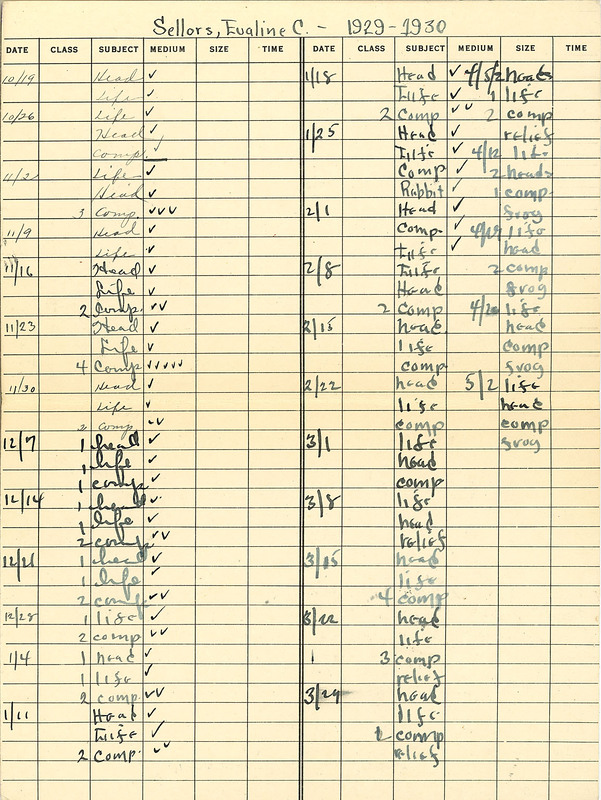 Sellors, Evaline C. - 1929-1930
DATE CLASS SUBJECT MEDIUM SIZE TIME DATE CLASS SUBJECT MEDIUM SIZE TIME
10/19 Head ✓
Life ✓
10/26 Life ✓
Head ✓
Comp. ✓
11/2 Life ✓
Head ✓
3 Comp. ✓✓✓
11/9 Head ✓
Life ✓
11/16 Head ✓
Life ✓
2 Comp. ✓✓
11/23 Head ✓
Life ✓
4 Comp ✓✓✓✓✓
11/30 Head ✓
Life ✓
2 Comp ✓✓
12/7 1 head ✓
1 life ✓
1 comp ✓
12/14 1 head ✓
1 life ✓
2 comp ✓✓
12/21 1 head ✓
1 life ✓
2 comp ✓✓
12/28 1 life ✓
2 comp ✓✓
1/4 1 head ✓
1 life ✓
2 comp. ✓✓
1/11 Head ✓
Life ✓
2 Comp. ✓✓
1/18 Head ✓
Life ✓
2 Comp ✓✓
1/25 Head ✓
Life ✓
Comp ✓
Rabbit ✓
2/1 Head ✓
Comp. ✓
Life ✓
2/8 Life
Head
2 Comp
2/15 head
life
comp
2/22 head
life
comp
3/1 life
head
comp
3/8 life
head
relief
3/15 head
life
4 comp
3/22 head
life
3 comp
relief
3/29 head
life
2 comp
relief
4/5 2 heads
1 life
2 comp
relief
4/12 life
2 heads
1 comp.
frog
4/19 life
head
2 comp
frog
4/26 life
head
comp
frog
5/2 life
head
comp
frog